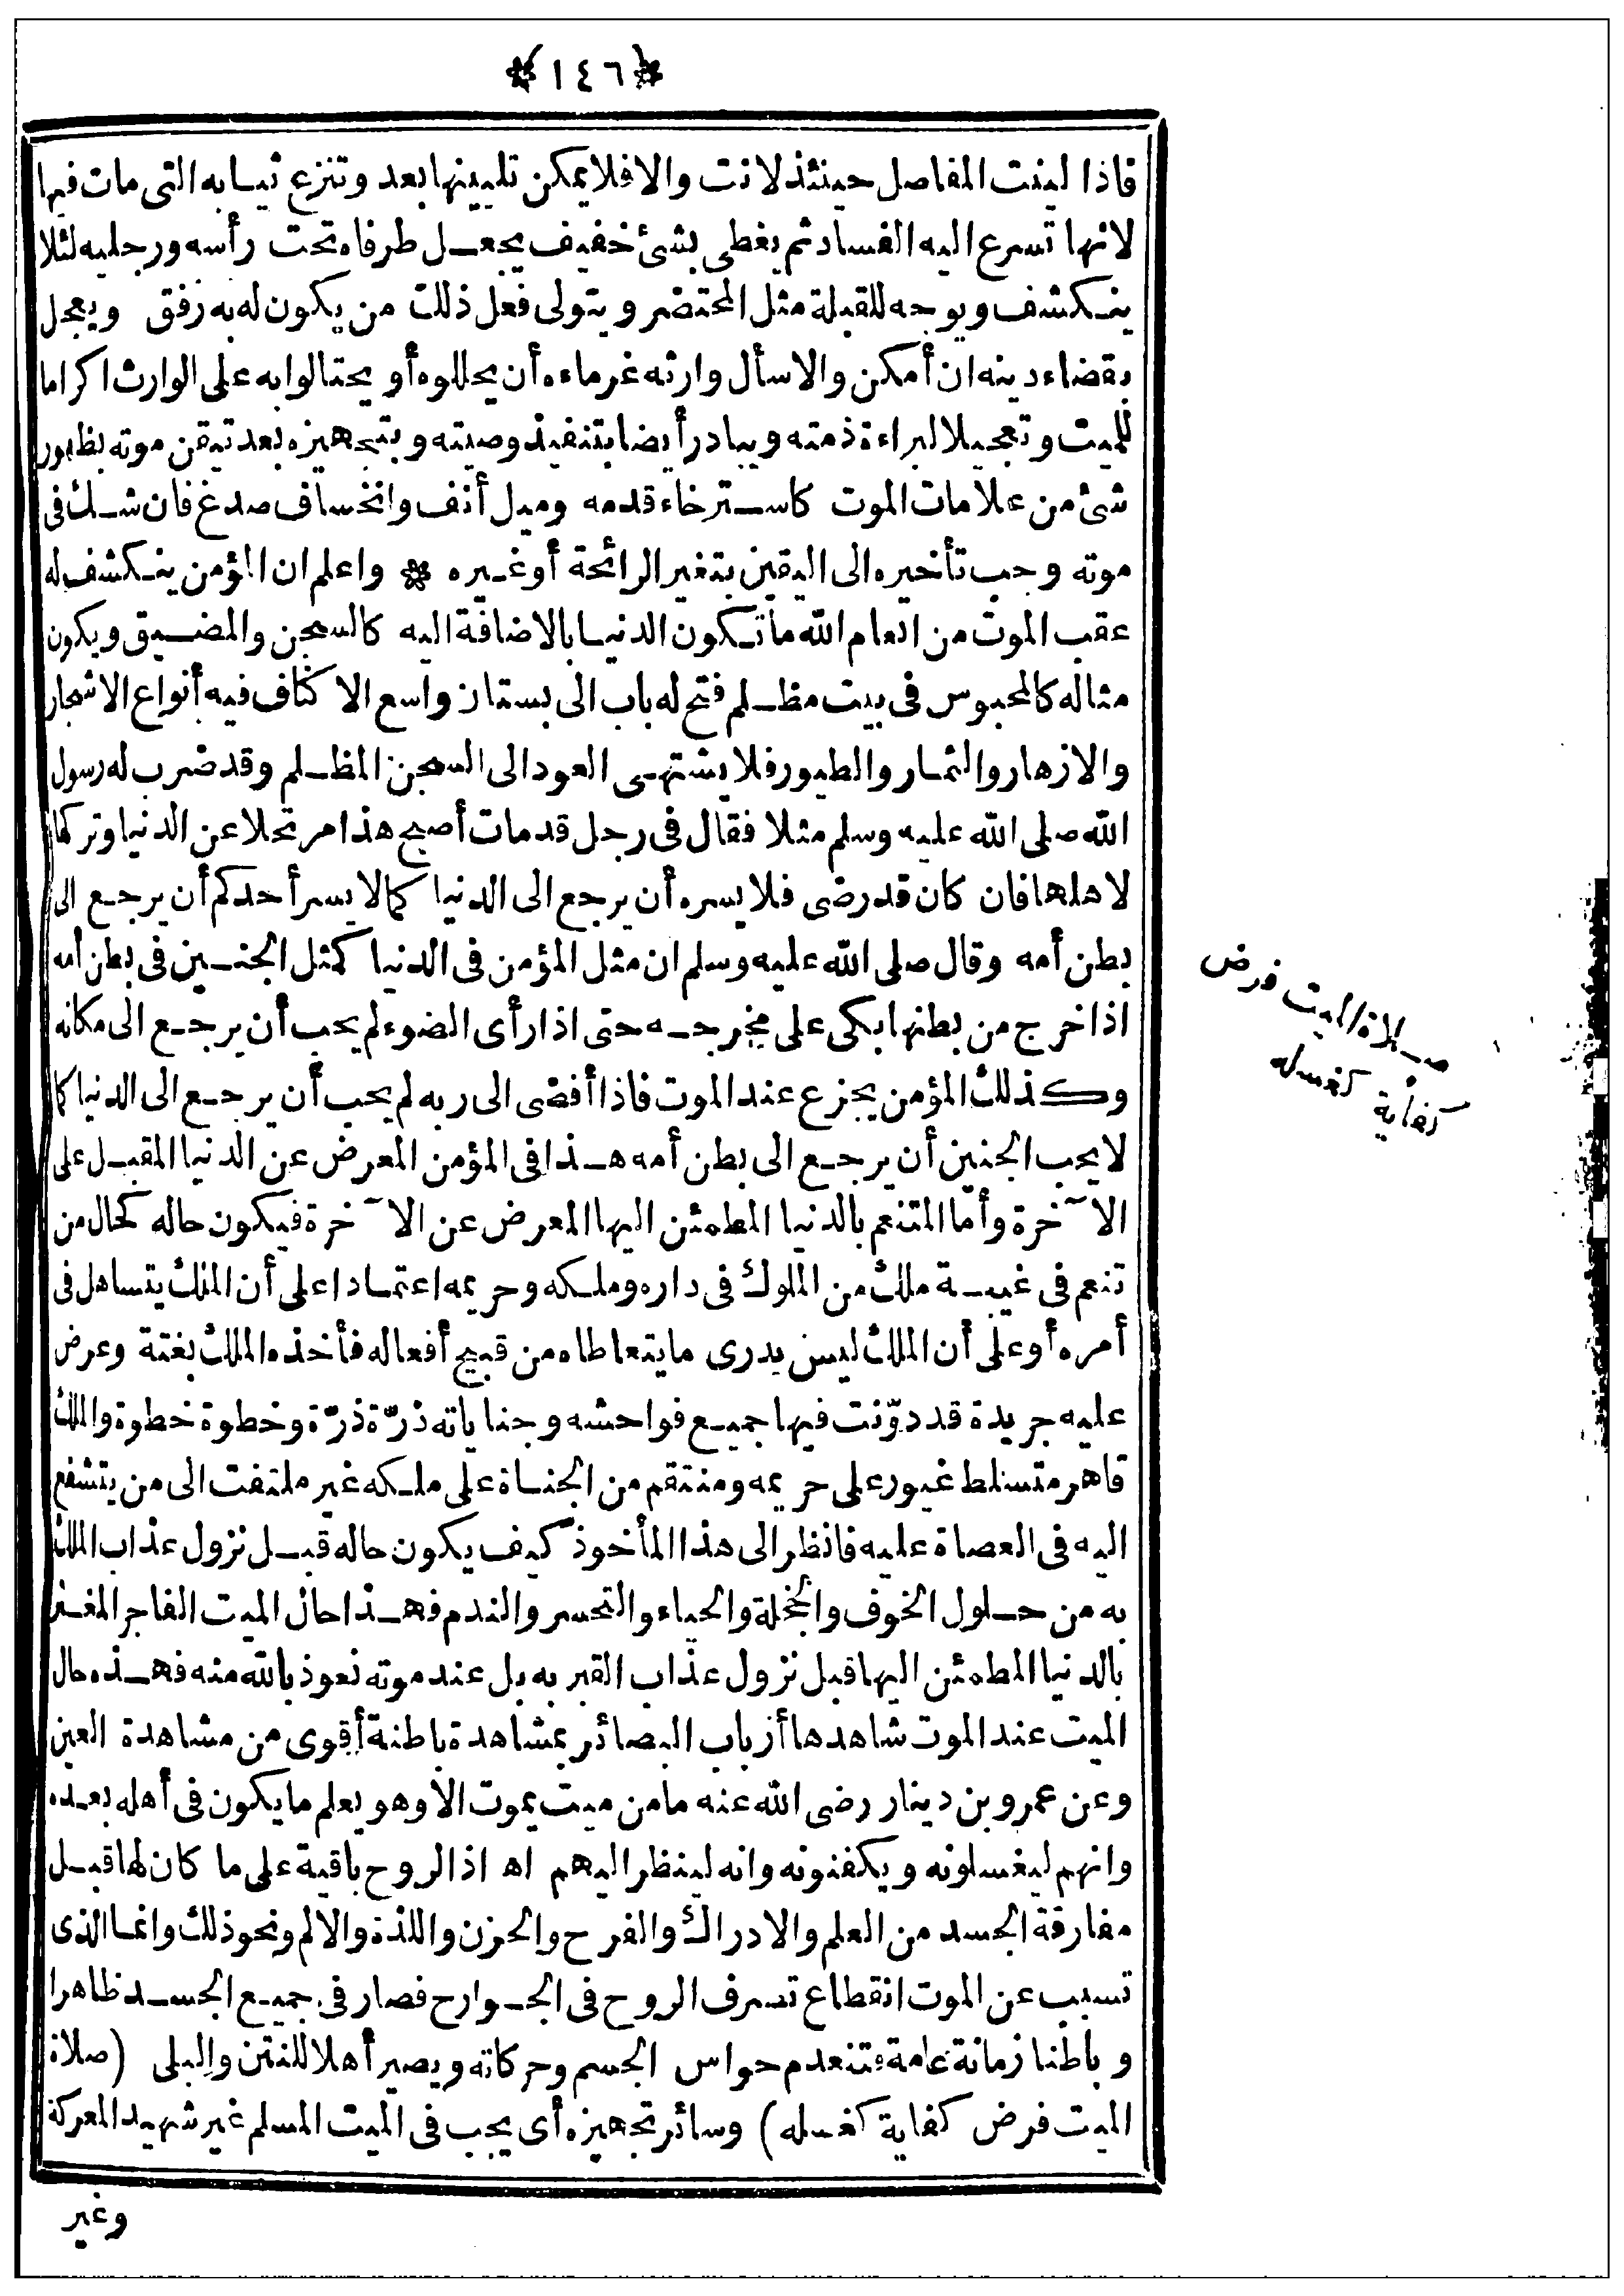 ﴿١٤٦﴾
فاذا لينت المفاصل حينئذ لانت والا فلا يمكن تليينها بعد وتنزع ثيابه التى مات فيها
لانها تسرع اليه الفساد ثم يغطى بشئ خفيف يجعل طرفاه تحت رأسه ورجليه لئلا
ينكشف ويوجه للقبلة مثل المحتضر ويتولى فعل ذلك من يكون له به رفق ويعجل
بقضاء دينه ان أمكن والا سأل وارثه غرماءه أن يحللوه أو يحتالوا به على الوارث اكراما
للميت وتعجيلا لبراءة ذمته ويبادر أيضا بتنفيذ وصيته وبتجهيزه بعد تيقن موته بظهور
شئ من علامات الموت كاسترخاء قدمه وميل أنف وانخساف صدغ فان شك فى
موته وجب تأخيره الى اليقين بتغير الرائحة أو غيره * واعلم ان المؤمن ينكشف له
عقب الموت من انعام الله ما تكون الدنيا بالاضافة اليه كالسجن والمضيق ويكون
مثاله كالمحبوس فى بيت مظلم فتح له باب الى بستان واسع الاكناف فيه أنواع الاشجار
والازهار والثمار والطيور فلا يشتهى العود الى السجن المظلم وقد ضرب له رسول
الله صلى الله عليه وسلم مثلا فقال فى رجل قد مات أصبح هذا مرتحلا عن الدنيا وتركها
لاهلها فان كان قد رضى فلا يسره أن يرجع الى الدنيا كما لا يسر أحدكم أن يرجع الى
بطن أمه وقال صلى الله عليه وسلم ان مثل المؤمن فى الدنيا كمثل الجنين فى بطن أمه
اذا خرج من بطنها بكى على مخرجه حتى اذا رأى الضوء لم يحب أن يرجع الى مكانه
وكذلك المؤمن يجزع عند الموت فاذا أفضى الى ربه لم يحب أن يرجع الى الدنيا كما
لا يحب الجنين أن يرجع الى بطن أمه هذا فى المؤمن المعرض عن الدنيا المقبل على
الآخرة وأمّا المتنعم بالدنيا المطمئن اليها المعرض عن الآخرة فيكون حاله كحال من
تنعم فى غيبة ملك من الملوك فى داره وملكه وحريمه اعتمادا على أن الملك يتساهل فى
أمره أو على أن الملك ليس يدرى ما يتعاطاه من قبيح أفعاله فأخذه الملك بغتة وعرض
عليه جريدة قد دوّنت فيها جميع فواحشه وجناياته ذرّة ذرّة وخطوة خطوة والملك
قاهر متسلط غيور على حريمه ومنتقم من الجناة على ملكه غير ملتفت الى من يتشفع
اليه فى العصاة عليه فانظر الى هذا المأخوذ كيف يكون حاله قبل نزول عذاب الملك
به من حلول الخوف والخجلة والحياء والتحسر والندم فهذا حال الميت الفاجر المغتر
بالدنيا المطمئن اليها قبل نزول عذاب القبر به بل عند موته نعوذ بالله منه فهذه حال
الميت عند الموت شاهدها أرباب البصائر بمشاهدة باطنة أقوى من مشاهدة العين
وعن عمرو بن دينار رضى الله عنه ما من ميت يموت الا وهو يعلم ما يكون فى أهله بعده
وانهم ليغسلونه ويكفنونه وانه لينظر اليهم اه اذ الروح باقية على ما كان لها قبل
مفارقة الجسد من العلم والادراك والفرح والحزن واللذة والالم ونحو ذلك وانما الذى
تسبب عن الموت انقطاع تصرف الروح فى الجوارح فصار فى جميع الجسد ظاهرا
وباطنا زمانة عامة فتنعدم حواس الجسم وحركاته ويصير أهلا للنتن والبلى (صلاة
الميت فرض كفاية كغسله) وسائر تجهيزه أى يجب فى الميت المسلم غير شهيد المعركة
وغير
صلاة الميت فرض
كفاية كغسله